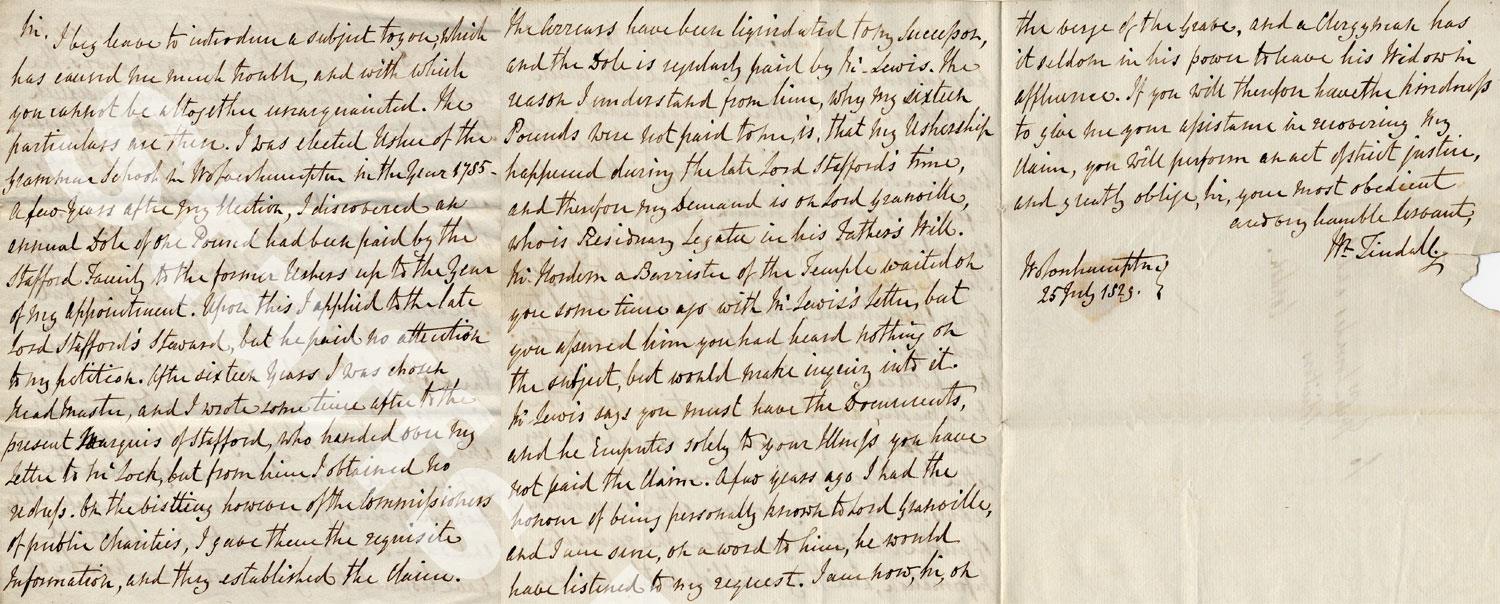 Sir.
I beg leave to introduce a subject to you, which
has caused me much trouble, and with which
you cannot be altogether unacquainted. The
particulars are these. I was elected Usher of the
Grammar School in Wolverhampton in the Year 1785.
A few Years after my Election, I discovered an
annual Dole of one Pound had been paid by the
Stafford Family to the former Ushers up to the Year
of my appointment. Upon this I applied to the late
Lord Stafford's Steward, but he paid no attention
to my petition. After sixteen Years I was chosen
Head Master, and I wrote some time after to the
present Marquis of Stafford, who handed over my
Letter to Mr. Lock, but from him I obtained no
redress. On the visiting however of the Commissioners
of public Charities, I gave them the requisite
Information, and they established the Claim.
The Arrears have been liquidated to my Successor,
and the Dole is regularly paid by Mr. Lewis. The
reason I understand from him, why my sixteen
Pounds were not paid to me, is, that my Ushership
happened during the late Lord Stafford's time,
and therefore my Demand is on Lord Granville,
who is Residuary Legatee in his Father's Will.
Mr. Hordern a Barrister of the Temple waited on
you some time ago with Mr. Lewis's Letter, but
you assured him you had heard nothing on
the subject, but would make inquiry into it.
Mr. Lewis says you must have the Documents,
and he Imputes solely to your Illness you have
not paid the Claim. A few years ago I had the
honour of being personally known to Lord Granville,
and I am sure, on a word to him, he would
have listened to my request. I am now, Sir, on
the verge of the Grave, and a Clergyman has
it seldom in his power to leave his Widow in
affluence. If you will therefore have the kindness
to give me your assistance in recovering my
Claim, you will perform an act of strict justice,
and greatly oblige, Sir, your most obedient
and very humble Servant,
Wm. Tindall.
Wolverhampton
25 July 1829.